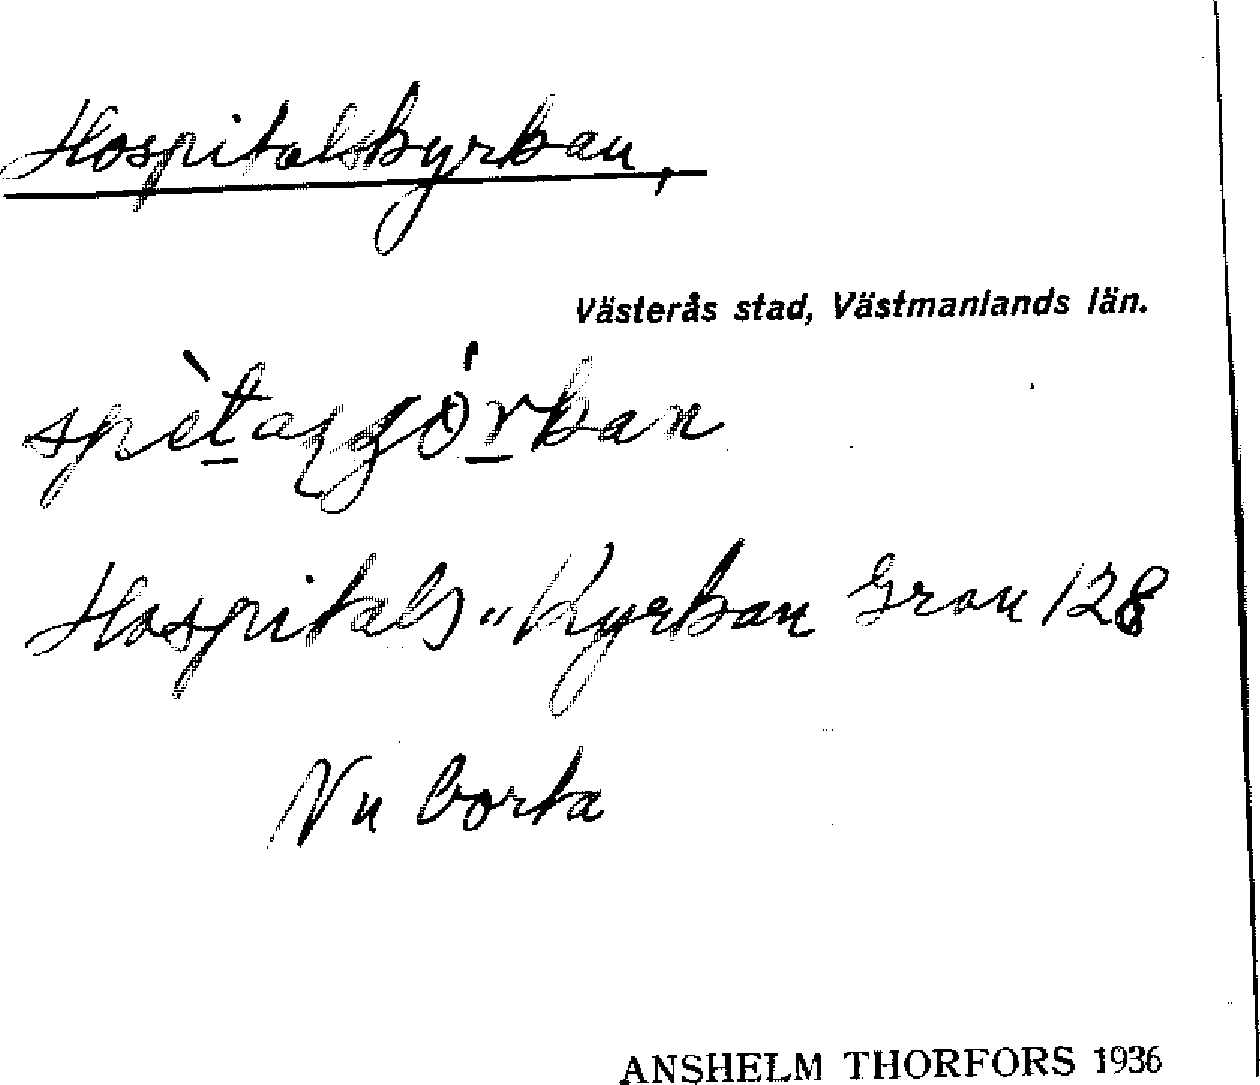 Hospitalskyrkan,
Västerås stad, Västmanlands län.
Hospitals-Kyrkan Grau 128
Nu borta
ANSHELM THORFORS 1936